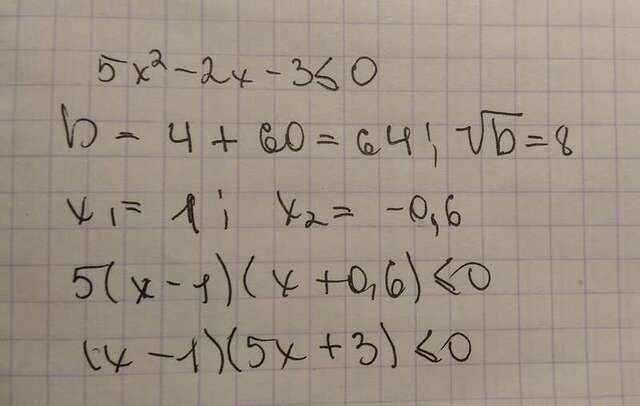 5x² - 2x - 3 ≤ 0
D = 4 + 60 = 64; √D = 8
x₁ = 1; x₂ = -0,6
5(x - 1)(x + 0,6) ≤ 0
(x - 1)(5x + 3) ≤ 0